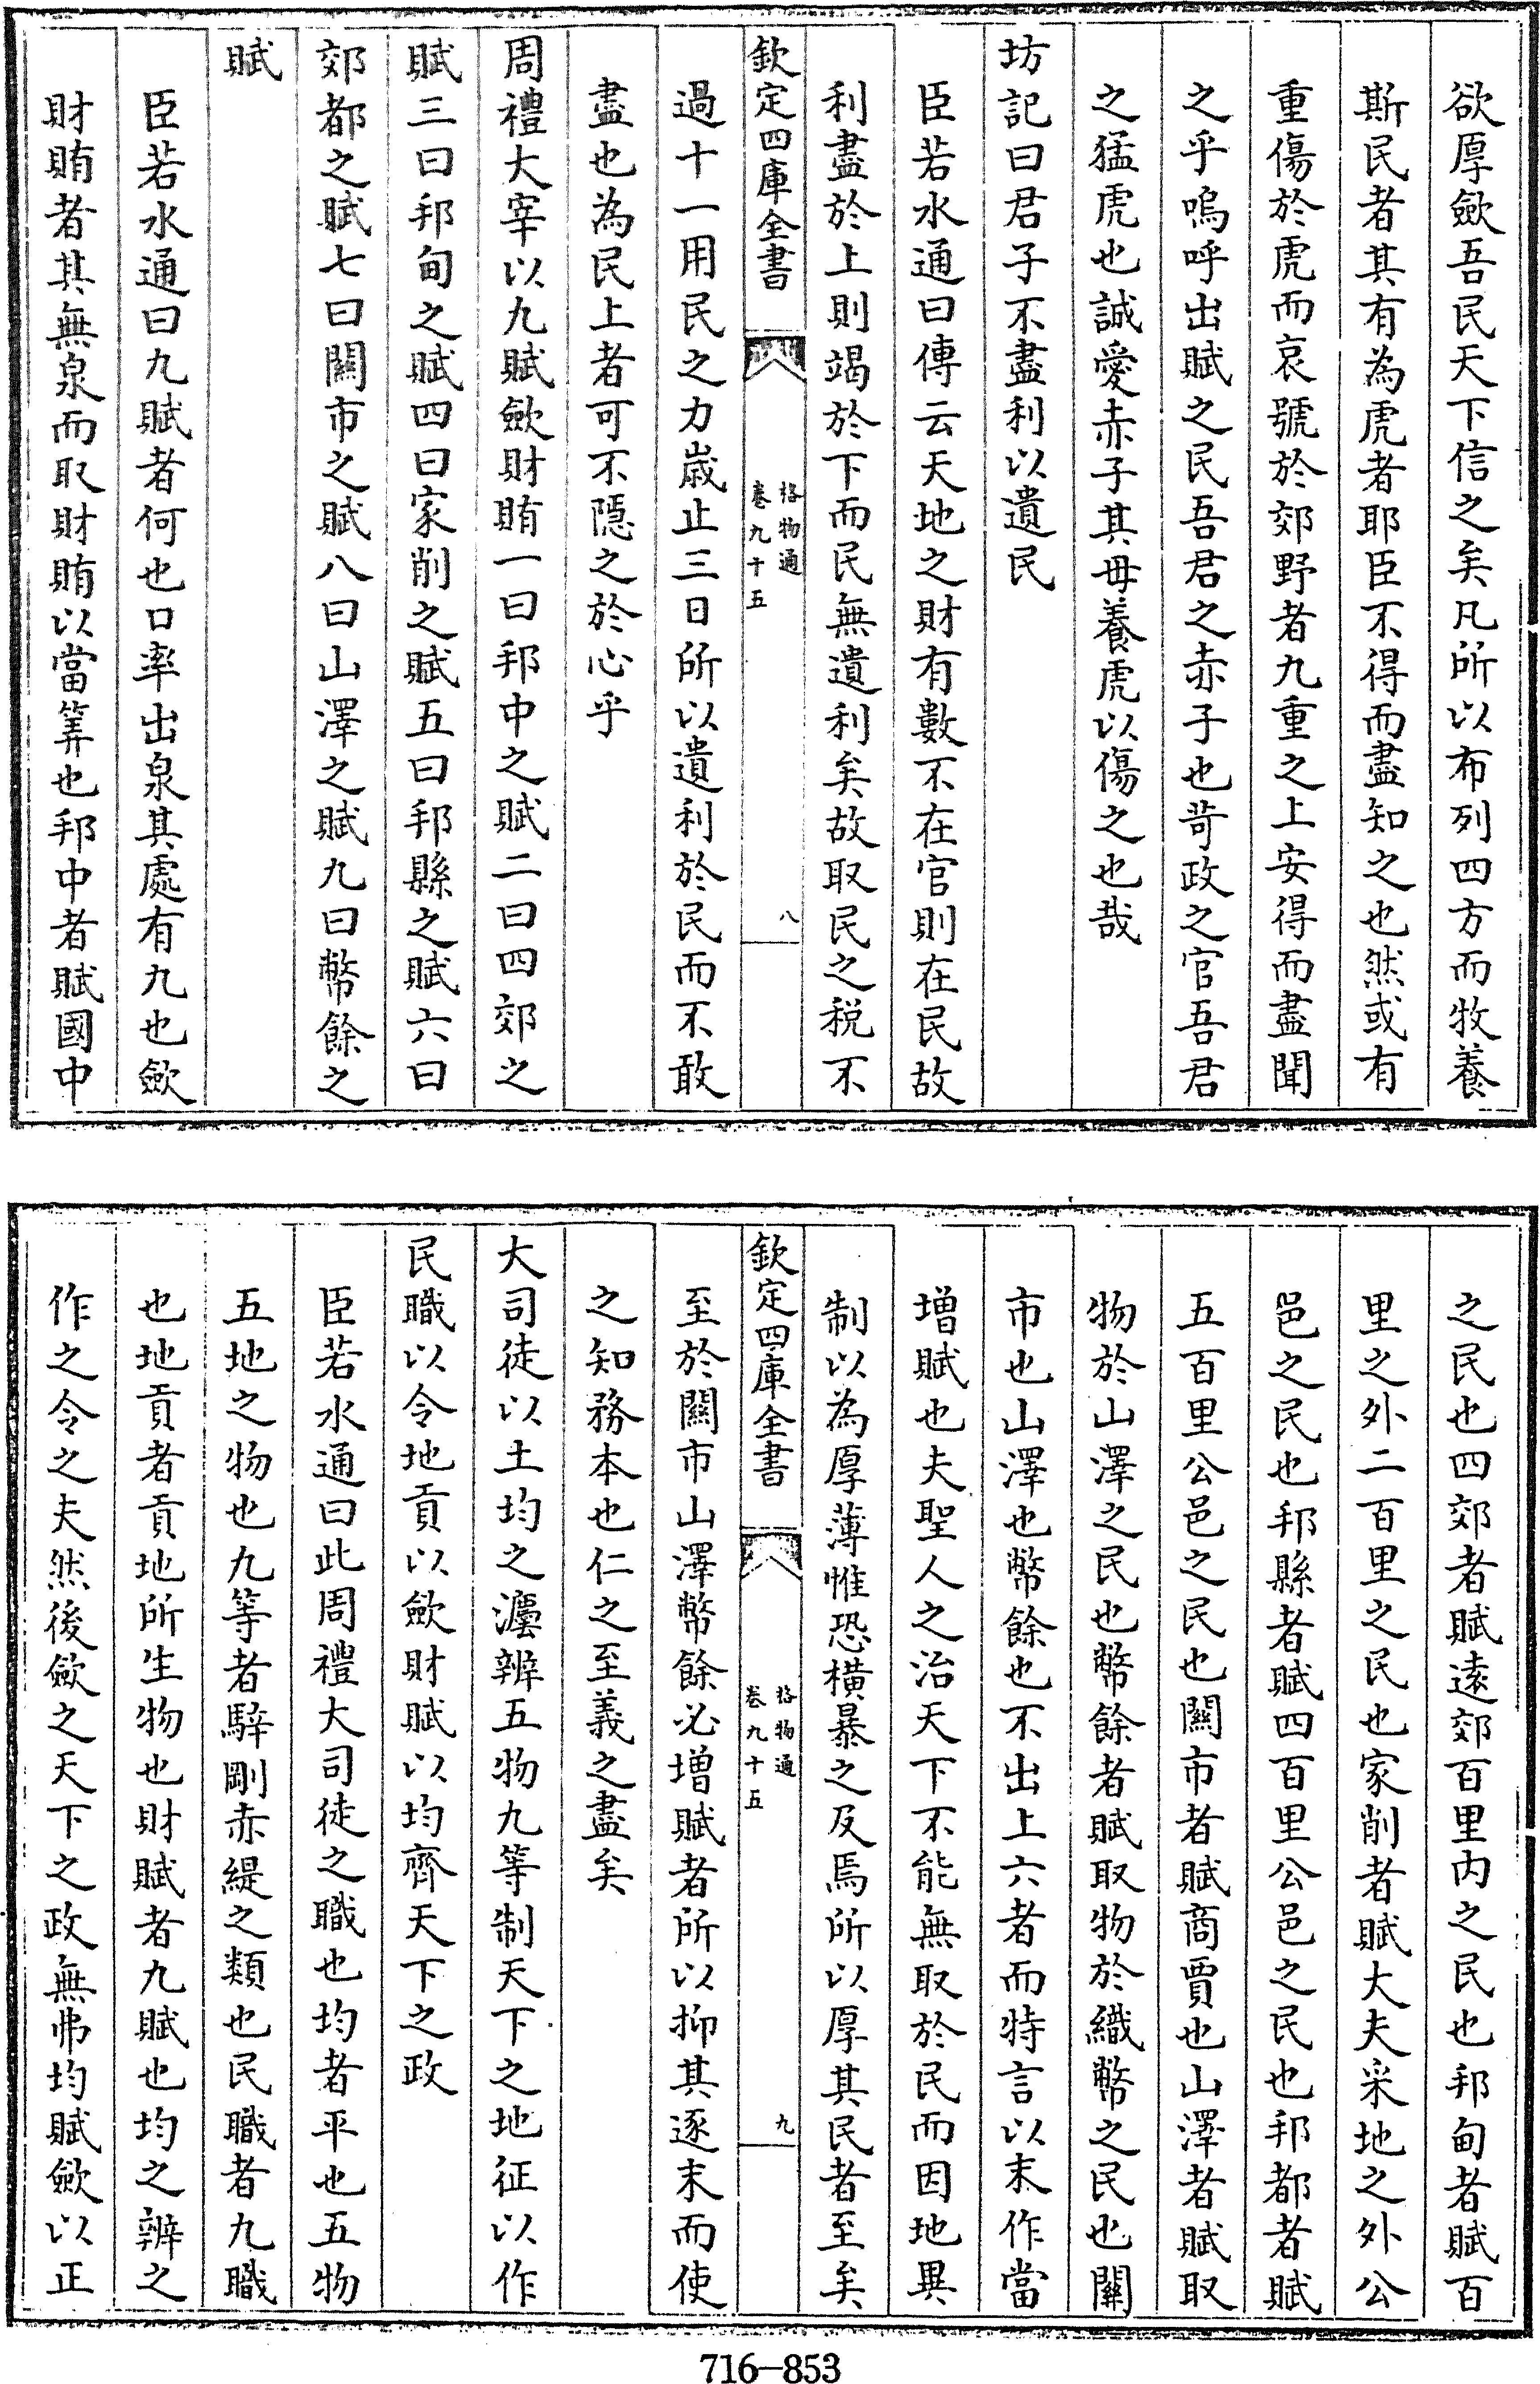 欲厚歛吾民天下信之矣凡所以布列四方而牧養
斯民者其有為虎者耶臣不得而盡知之也然或有
重傷於虎而哀號於郊野者九重之上安得而盡聞
之乎嗚呼出賦之民吾君之赤子也苛政之官吾君
之猛虎也誠愛赤子其毋養虎以傷之也哉
坊記曰君子不盡利以遺民
臣若水通曰傳云天地之財有數不在官則在民故
利盡於上則竭於下而民無遺利矣故取民之税不
欽定四庫全書
格物通
卷九十五
八
過十一用民之力嵗止三日所以遺利於民而不敢
盡也為民上者可不隱之於心乎
周禮大宰以九賦歛財賄一曰邦中之賦二曰四郊之
賦三曰邦甸之賦四曰家削之賦五曰邦縣之賦六曰
郊都之賦七曰關市之賦八曰山澤之賦九曰幣餘之
賦
臣若水通曰九賦者何也口率出泉其處有九也歛
財賄者其無泉而取財賄以當筭也邦中者賦國中
之民也四郊者賦逺郊百里内之民也邦甸者賦百
里之外二百里之民也家削者賦大夫采地之外公
邑之民也邦縣者賦四百里公邑之民也邦都者賦
五百里公邑之民也關市者賦商賈也山澤者賦取
物於山澤之民也幣餘者賦取物於織幣之民也關
市也山澤也幣餘也不出上六者而特言以末作當
增賦也夫聖人之治天下不能無取於民而因地異
制以為厚薄惟恐橫暴之及焉所以厚其民者至矣
欽定四庫全書
格物通
卷九十五
九
至於關市山澤幣餘必增賦者所以抑其逐末而使
之知務本也仁之至義之盡矣
大司徒以土均之灋辨五物九等制天下之地征以作
民職以令地貢以歛財賦以均齊天下之政
臣若水通曰此周禮大司徒之職也均者平也五物
五地之物也九等者騂剛赤緹之類也民職者九職
也地貢者貢地所生物也財賦者九賦也均之辨之
作之令之夫然後歛之天下之政無弗均賦歛以正
716-853